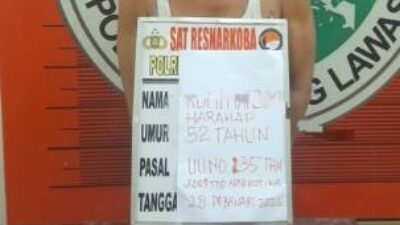 PO
G LAWAS
SAT RESNARKOBA
POLRI
NAMA
HARAHAP
UMUR 52 TAHUN
PASAL UUNO 35 THN
2009 TTG NARKOTIKA
TANGGA 28 FEBRUARI